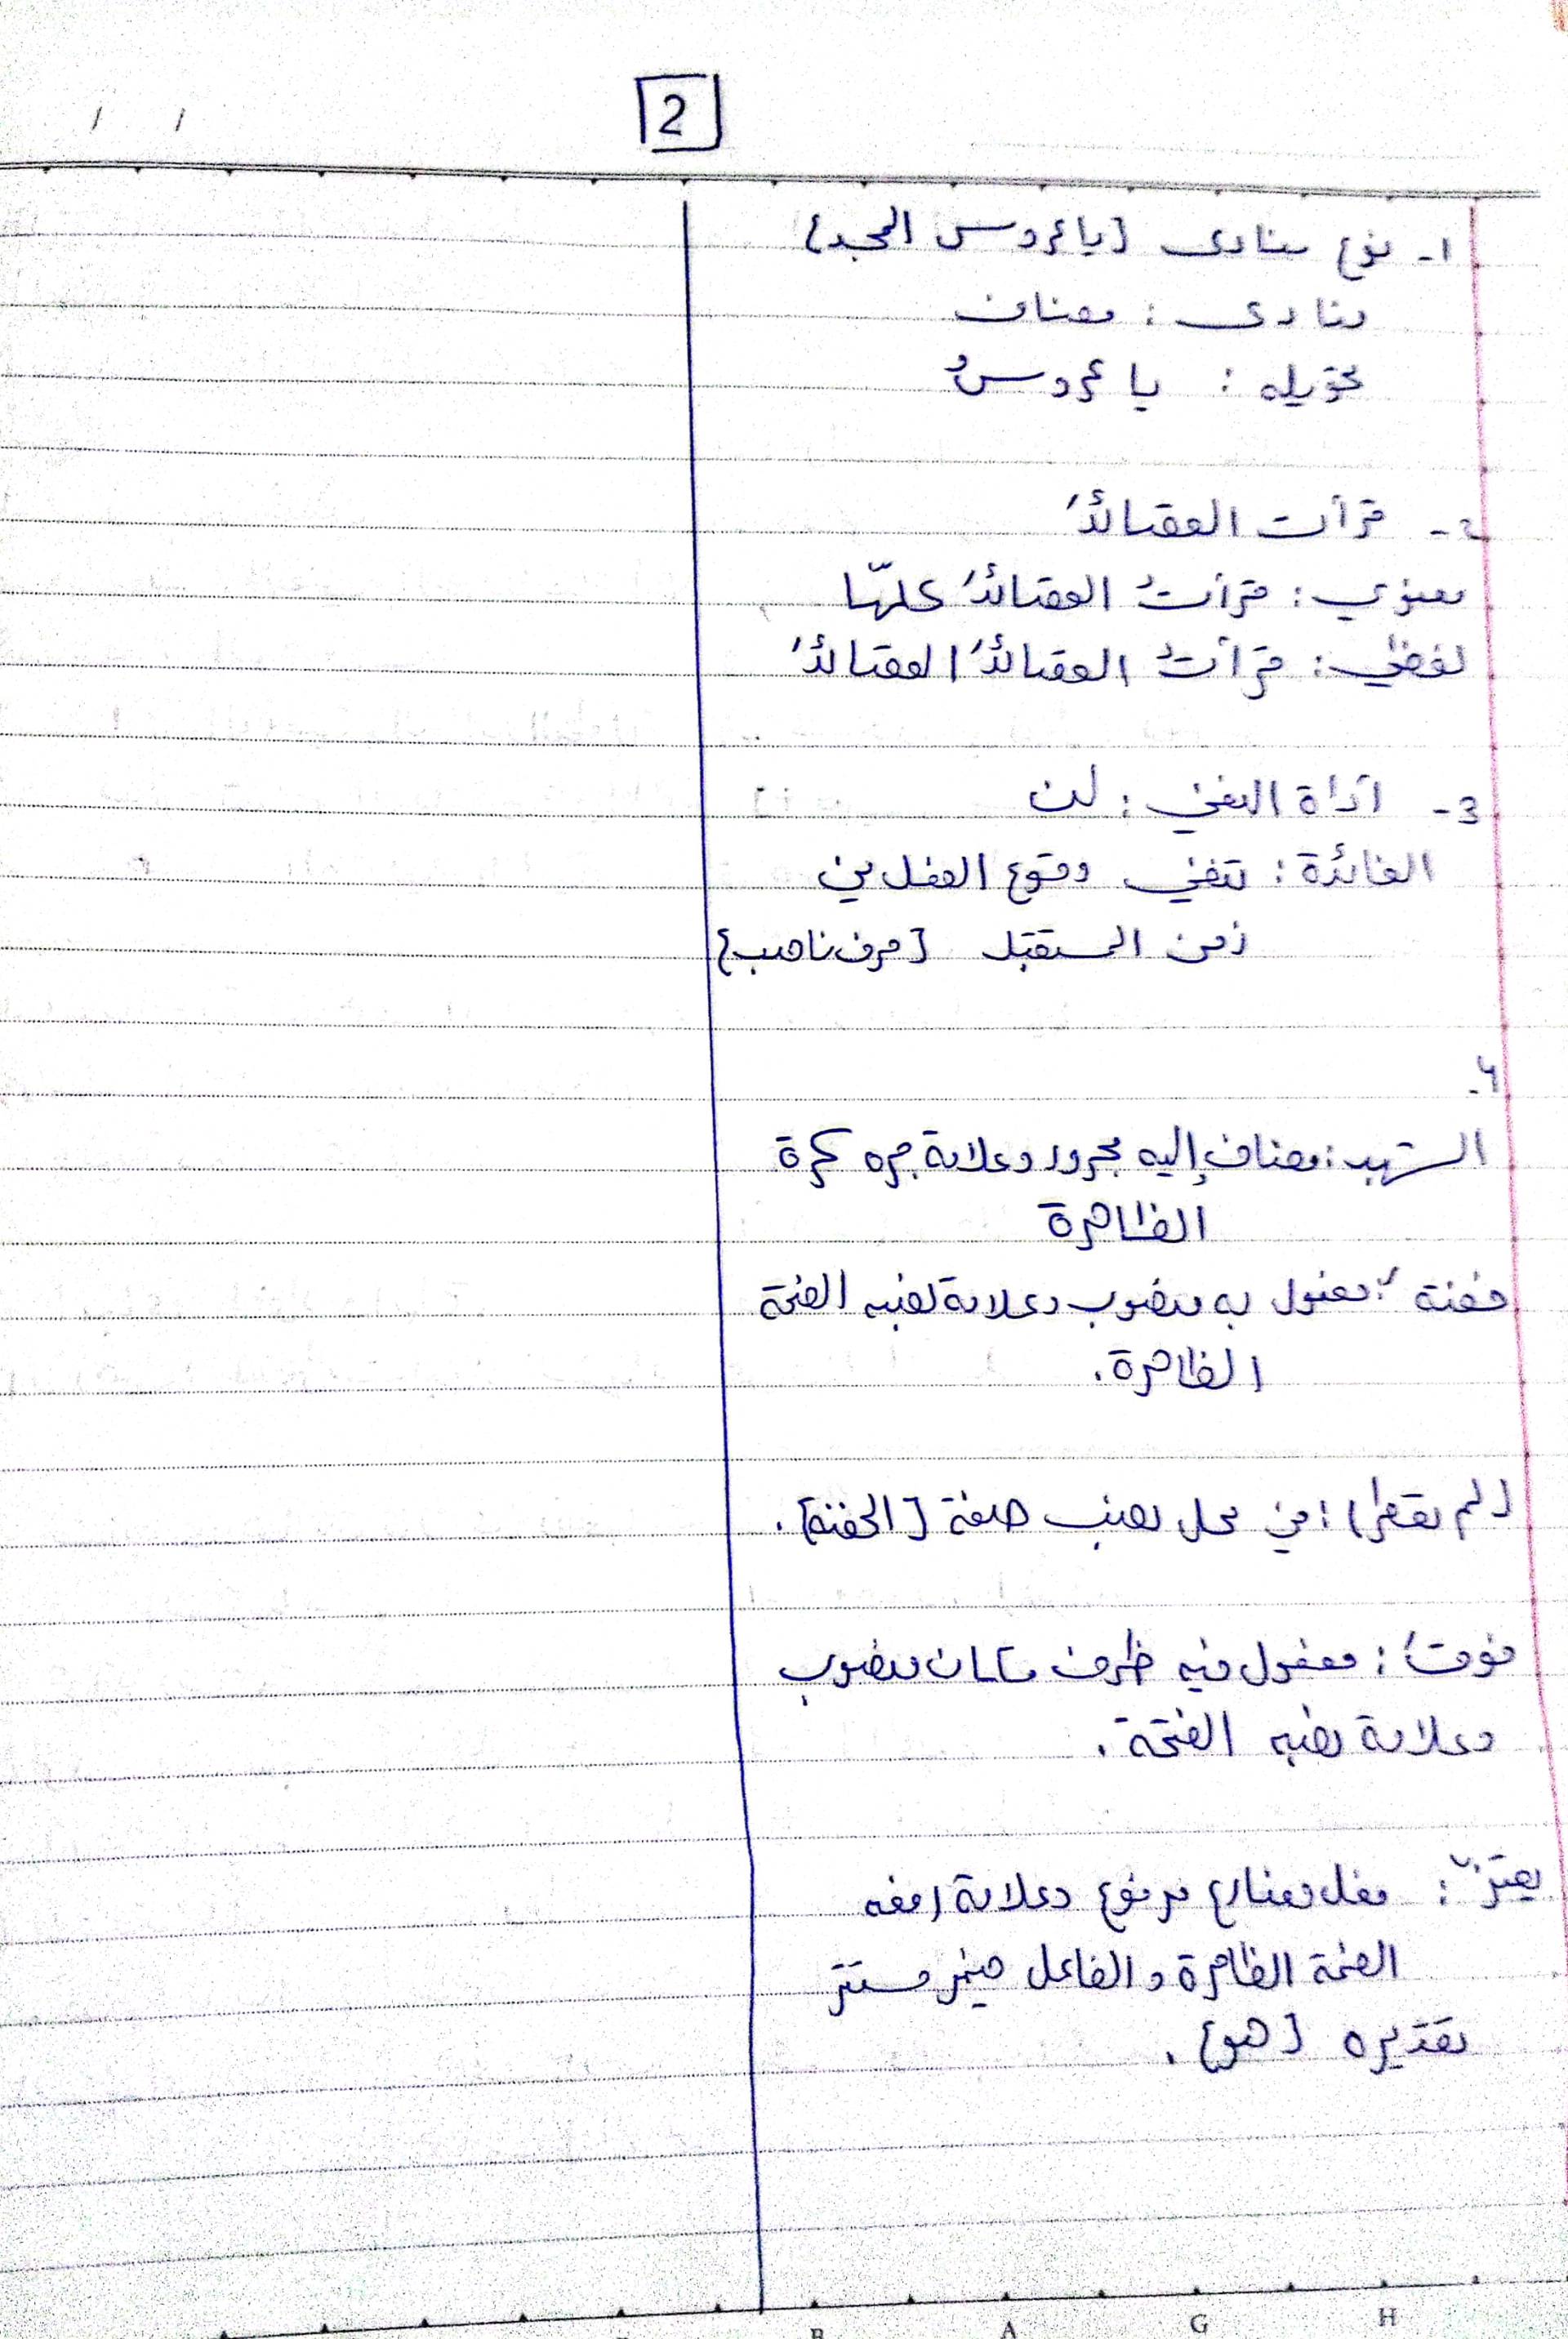 2
١- نوع منادى [يا عروس المجد]
منادى : مضاف
تحويله : يا عروسُ
٢- قرأت القصائدَ
معنوي : قرأتُ القصائدَ كلّها
لفظي : قرأتُ القصائدَ القصائدَ
3- أداة النفي : لن
الفائدة : تنفي وقوع الفعل في
زمن المستقبل [حرف ناصب]
٤-
الشهد : مضاف إليه مجرور وعلامة جره كسرة
الظاهرة
حفنة : مفعول به منصوب وعلامة نصبه الفتحة
الظاهرة .
(لم تقطر) : في محل نصب صفة [الحفنة] .
فوقَ : مفعول فيه ظرف مكان منصوب
وعلامة نصبه الفتحة .
يعتزّ : فعل مضارع مرفوع وعلامة رفعه
الضمة الظاهرة والفاعل ضمير مستتر
تقديره [هو] .
B A G H